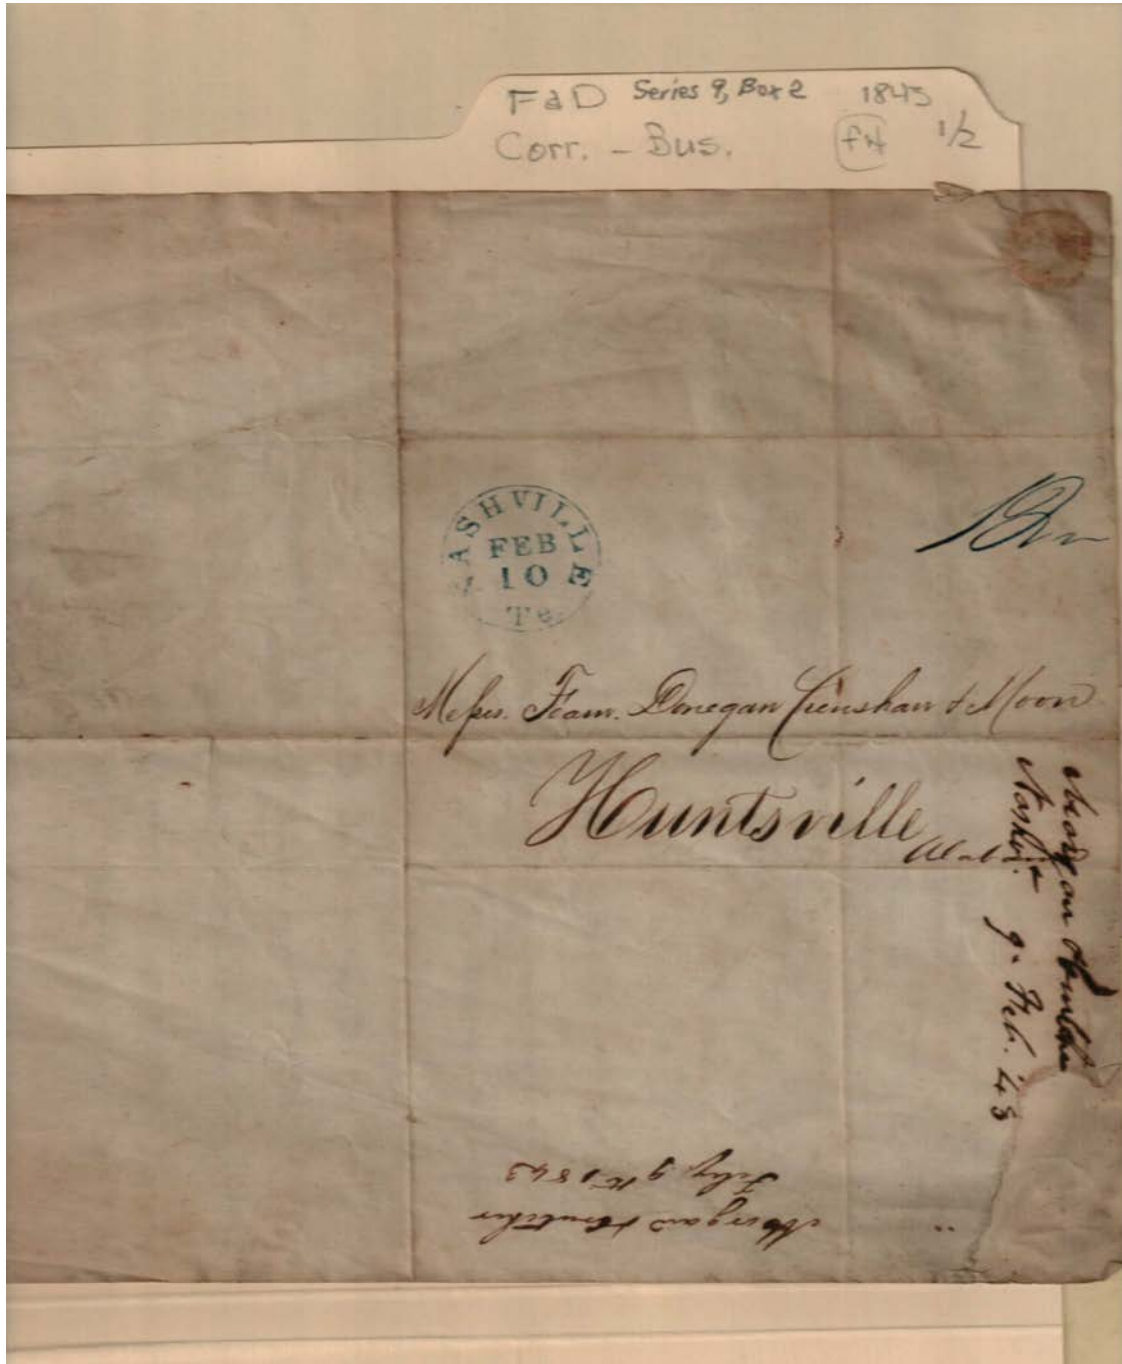 F&D Series 9, Box 2 1843
Corr. - Bus. 1/2
NASHVILLE
FEB
10
Te
Messrs. Fearn. Donegan Crenshaw & Moon
Huntsville
Alabama
Morgan
Nashv.
9. Feb. 43
Morgan &
Feby 9th 1843